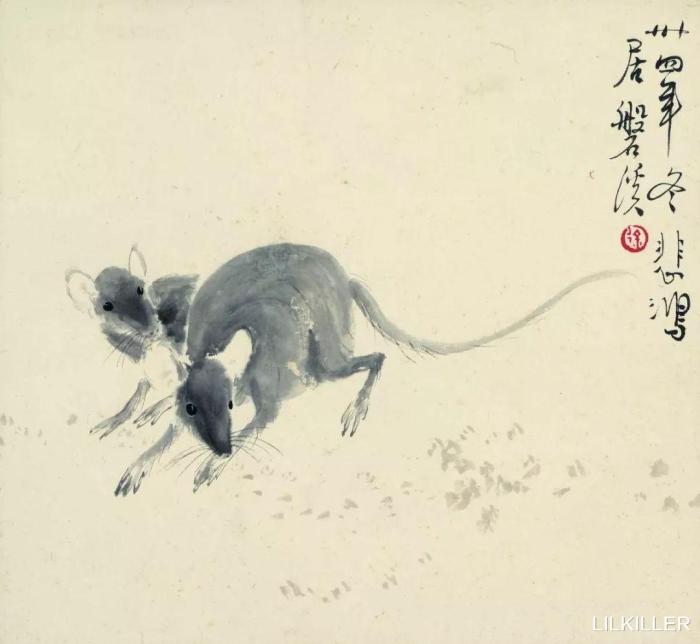 卅四年冬悲鴻
居磐溪
徐
LILKILLER